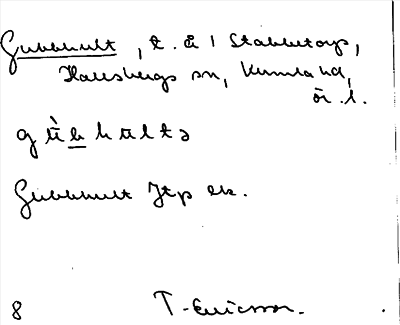 Gubbhult, t. å 1 Stabbetorp,
Hallsbergs sn, Kumla hd,
ör. l.
gùbhulta
Gubbhult Jtp ek.
8 T. Ericsson.